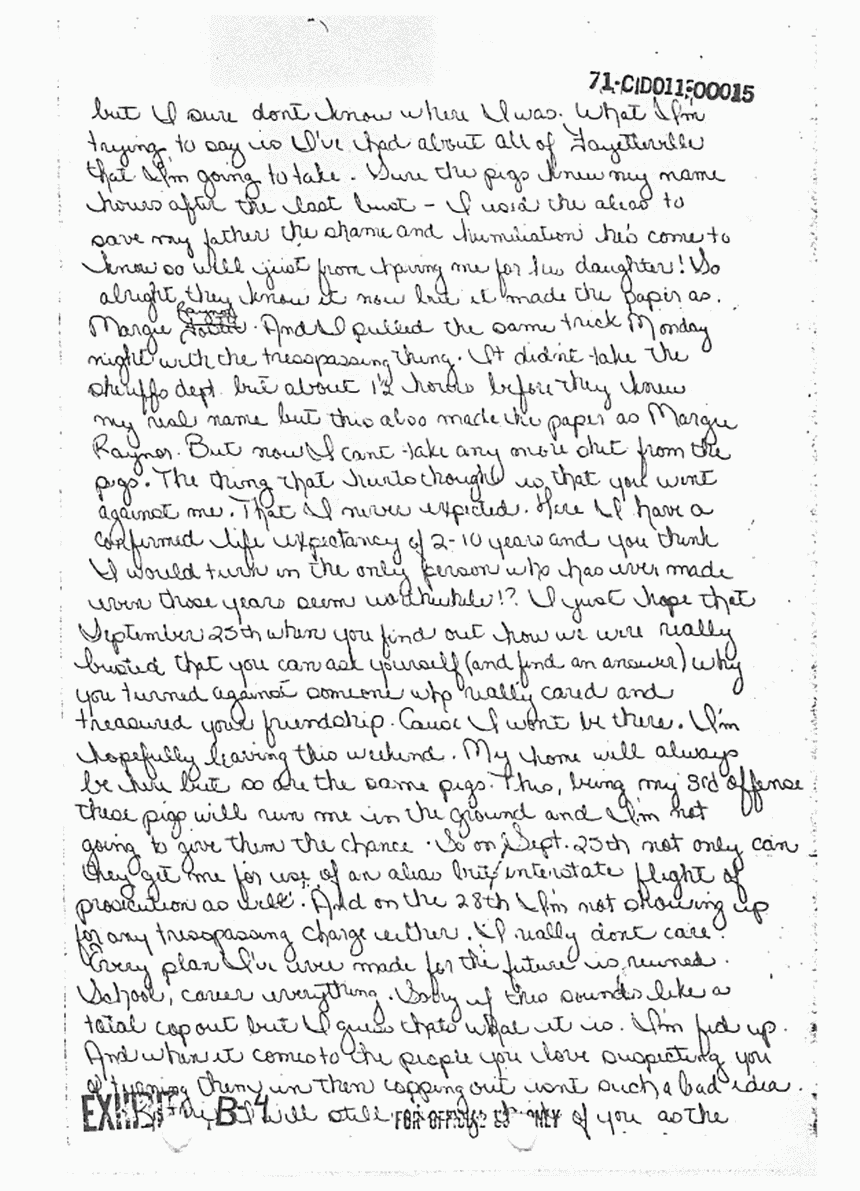 71-CID011-00015
but I sure dont know where I was. What I'm
trying to say is I've had about all of Fayetteville
that I'm going to take. Sure the pigs knew my name
hours after the last bust - I used the alias to
save my father the shame and humiliation he's come to
know so well just from having me for his daughter! So
alright, they know it now but it made the paper as.
Raynor
Margie. And I pulled the same trick Monday
night with the tresspassing thing. It didn't take the
sheriffs dept. but about 12 hours before they knew
my real name but this also made the paper as Margie
Raynor. But now I cant take any more shit from the
pigs. The thing that hurts though is that you went
against me. That I never expected. Here I have a
confirmed life expectancy of 2-10 years and you think
I would turn in the only person who has ever made
even those years seem worthwhile!? I just hope that
September 25th when you find out how we were really
busted that you can ask yourself (and find an answer) why
you turned against someone who really cared and
treasured your friendship. Cause I wont be there. I'm
hopefully leaving this weekend. My home will always
be here but so are the same pigs. This, being my 3rd offense
these pigs will run me in the ground and I'm not
going to give them the chance. So on Sept. 25th not only can
they get me for use of an alias but interstate flight of
prosecution as well. And on the 28th I'm not showing up
for any tresspassing charge either. I really dont care.
Every plan I've ever made for the future is reuned.
School, career everything. Sorry if this sounds like a
total cop out but I guess thats what it is. I'm fed up.
And when it comes to the people you love suspecting you
of turning them in then copping out isnt such a bad idea.
EXHIBIT B-4 I will still FOR OFFICIAL USE ONLY of you as the